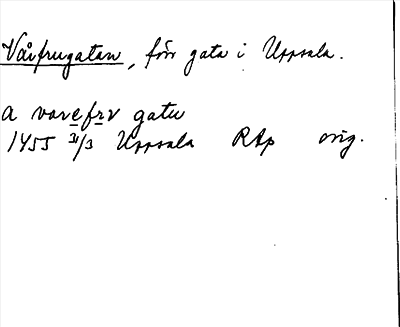 Vårfrugatan, förr gata i Uppsala.
a varefrv gatu
1455 31/3 Uppsala RAp orig.